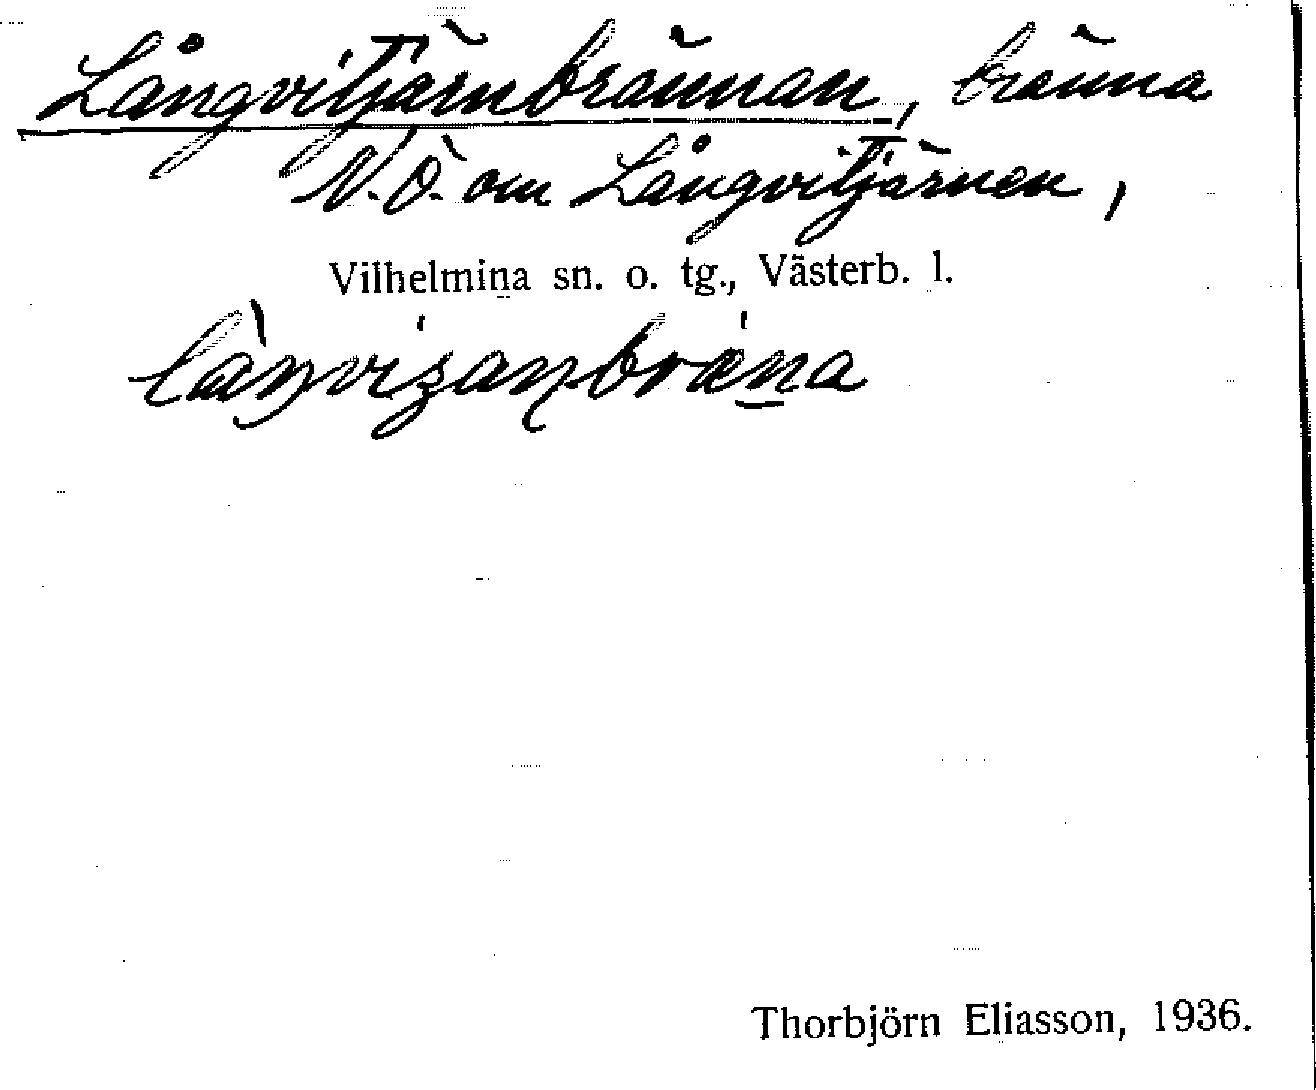 Långvitjärnbrännan, bränna
N.Ö. om Långvitjärnen,
Vilhelmina sn. o. tg., Västerb. l.
Thorbjörn Eliasson, 1936.